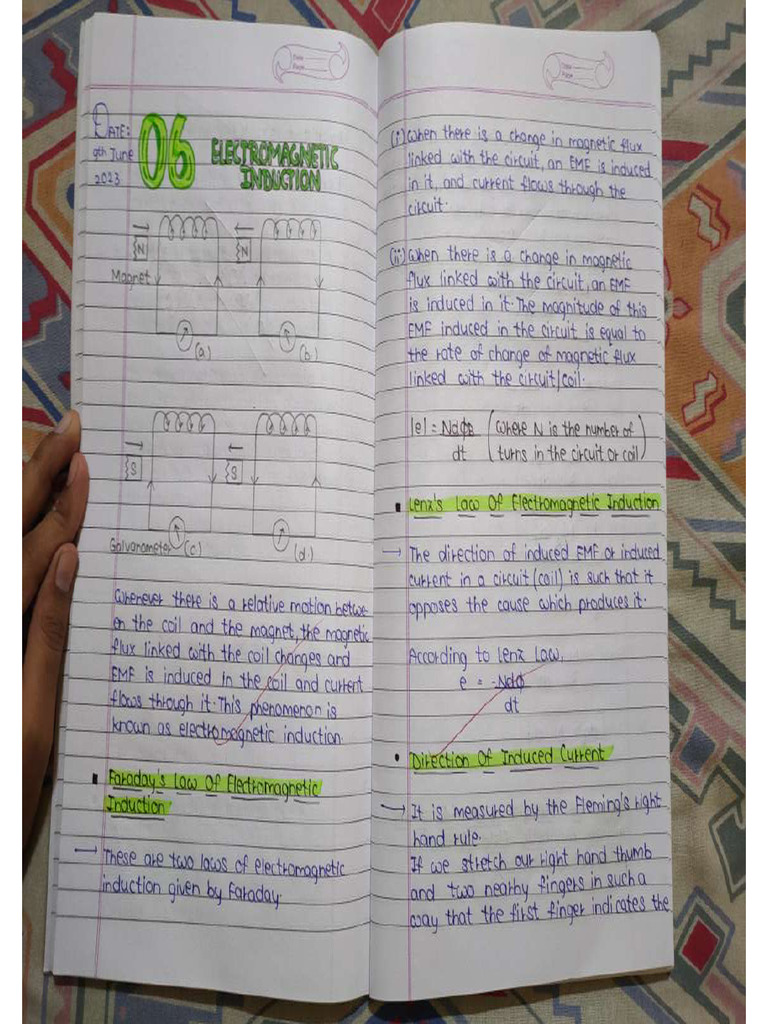 DATE:
9th June
2023
06 ELECTROMAGNETIC
INDUCTION
N
N
Magnet
(a)
(b)
S
S
Galvanometer (c)
(d)
Whenever there is a relative motion betwe-
en the coil and the magnet, the magnetic
flux linked with the coil changes and
EMF is induced in the coil and current
flows through it. This phenomenon is
known as electromagnetic induction.
Faraday's Law Of Electromagnetic
Induction
→ These are two laws of electromagnetic
induction given by Faraday.
(i) When there is a change in magnetic flux
linked with the circuit, an EMF is induced
in it, and current flows through the
circuit.
(ii) When there is a change in magnetic
flux linked with the circuit, an EMF
is induced in it. The magnitude of this
EMF induced in the circuit is equal to
the rate of change of magnetic flux
linked with the circuit/coil.
|e| = Ndφ (where N is the number of
dt turns in the circuit or coil)
Lenz's Law Of Electromagnetic Induction
→ The direction of induced EMF or induced
current in a circuit (coil) is such that it
opposes the cause which produces it.
According to Lenz Law,
e = -Ndφ
dt
Direction Of Induced Current
→ It is measured by the Fleming's right
hand rule.
If we stretch our right hand thumb
and two nearby fingers in such a
way that the first finger indicates the